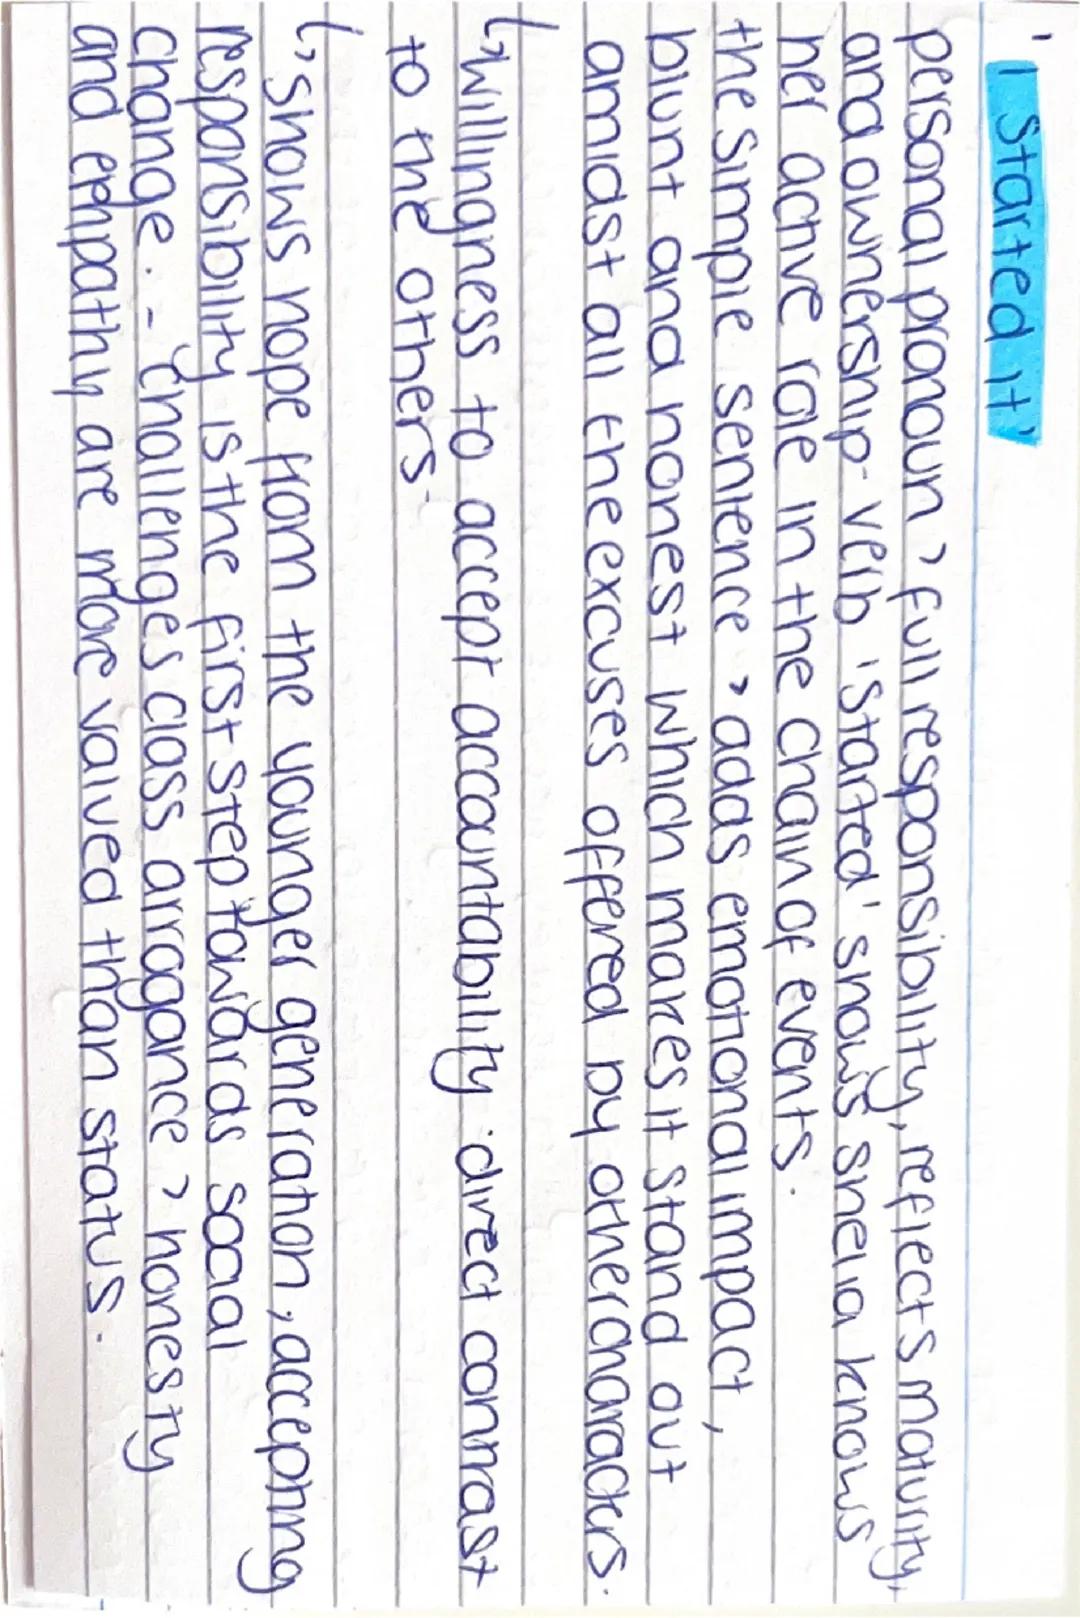 'I Started it'
personal pronoun > full responsibility, reflects maturity,
and ownership- verb 'started' shows sheila knows
her active role in the chain of events.
the simple sentence > adds emotional impact,
blunt and honest which makes it stand out
amidst all the excuses offered by other characters.
↳ willingness to accept accountability · direct contrast
to the others
↳ shows hope from the younger generation, accepting
responsibility is the first step towards social
change. - challenges class arrogance > honesty
and empathy are more valued than status.